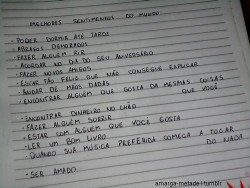 MELHORES SENTIMENTOS DO MUNDO
• PODER DORMIR ATÉ TARDE
• ABRAÇOS DEMORADOS
• FAZER ALGUÉM RIR
• ACORDAR NO DIA DO SEU ANIVERSÁRIO
• FAZER NOVOS AMIGOS
• ESTAR TÃO FELIZ QUE NÃO CONSEGUE EXPLICAR
• ANDAR DE MÃOS DADAS
• ENCONTRAR ALGUÉM QUE GOSTA DA MESMAS COISAS
QUE VOCÊ
• ENCONTRAR DINHEIRO NO CHÃO
• FAZER ALGUÉM SORRIR
• ESTAR COM ALGUÉM QUE VOCÊ GOSTA
• LER UM BOM LIVRO
• QUANDO SUA MÚSICA PREFERIDA COMEÇA A TOCAR
DO NADA
• SER AMADO
amarga-metade | tumblr